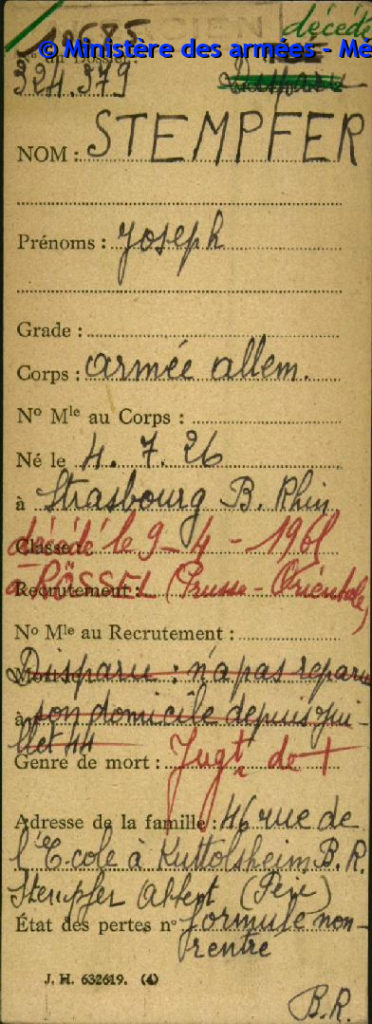 décédé
18685
© Ministère des armées - Mé
N° au Dossier:
324.379
NOM : STEMPFER
Prénoms : Joseph
Grade :
Corps : armée allem.
N° Mle au Corps :
Né le 4. 7. 26
à Strasbourg B. Rhin
Classe : décédé le 9-4-1961
Recrutement : à RÖSSEL (Prusse-Orientale)
N° Mle au Recrutement :
Disparu : n'a pas reparu
à son domicile depuis jui-
llet 44
Genre de mort : Jugt de +
Adresse de la famille : 46 rue de
l'Ecole à Kuttolsheim B.R.
Stempfer Albert (Père)
État des pertes n° formule non-
rentré
J. H. 632619. (4)
B.R.